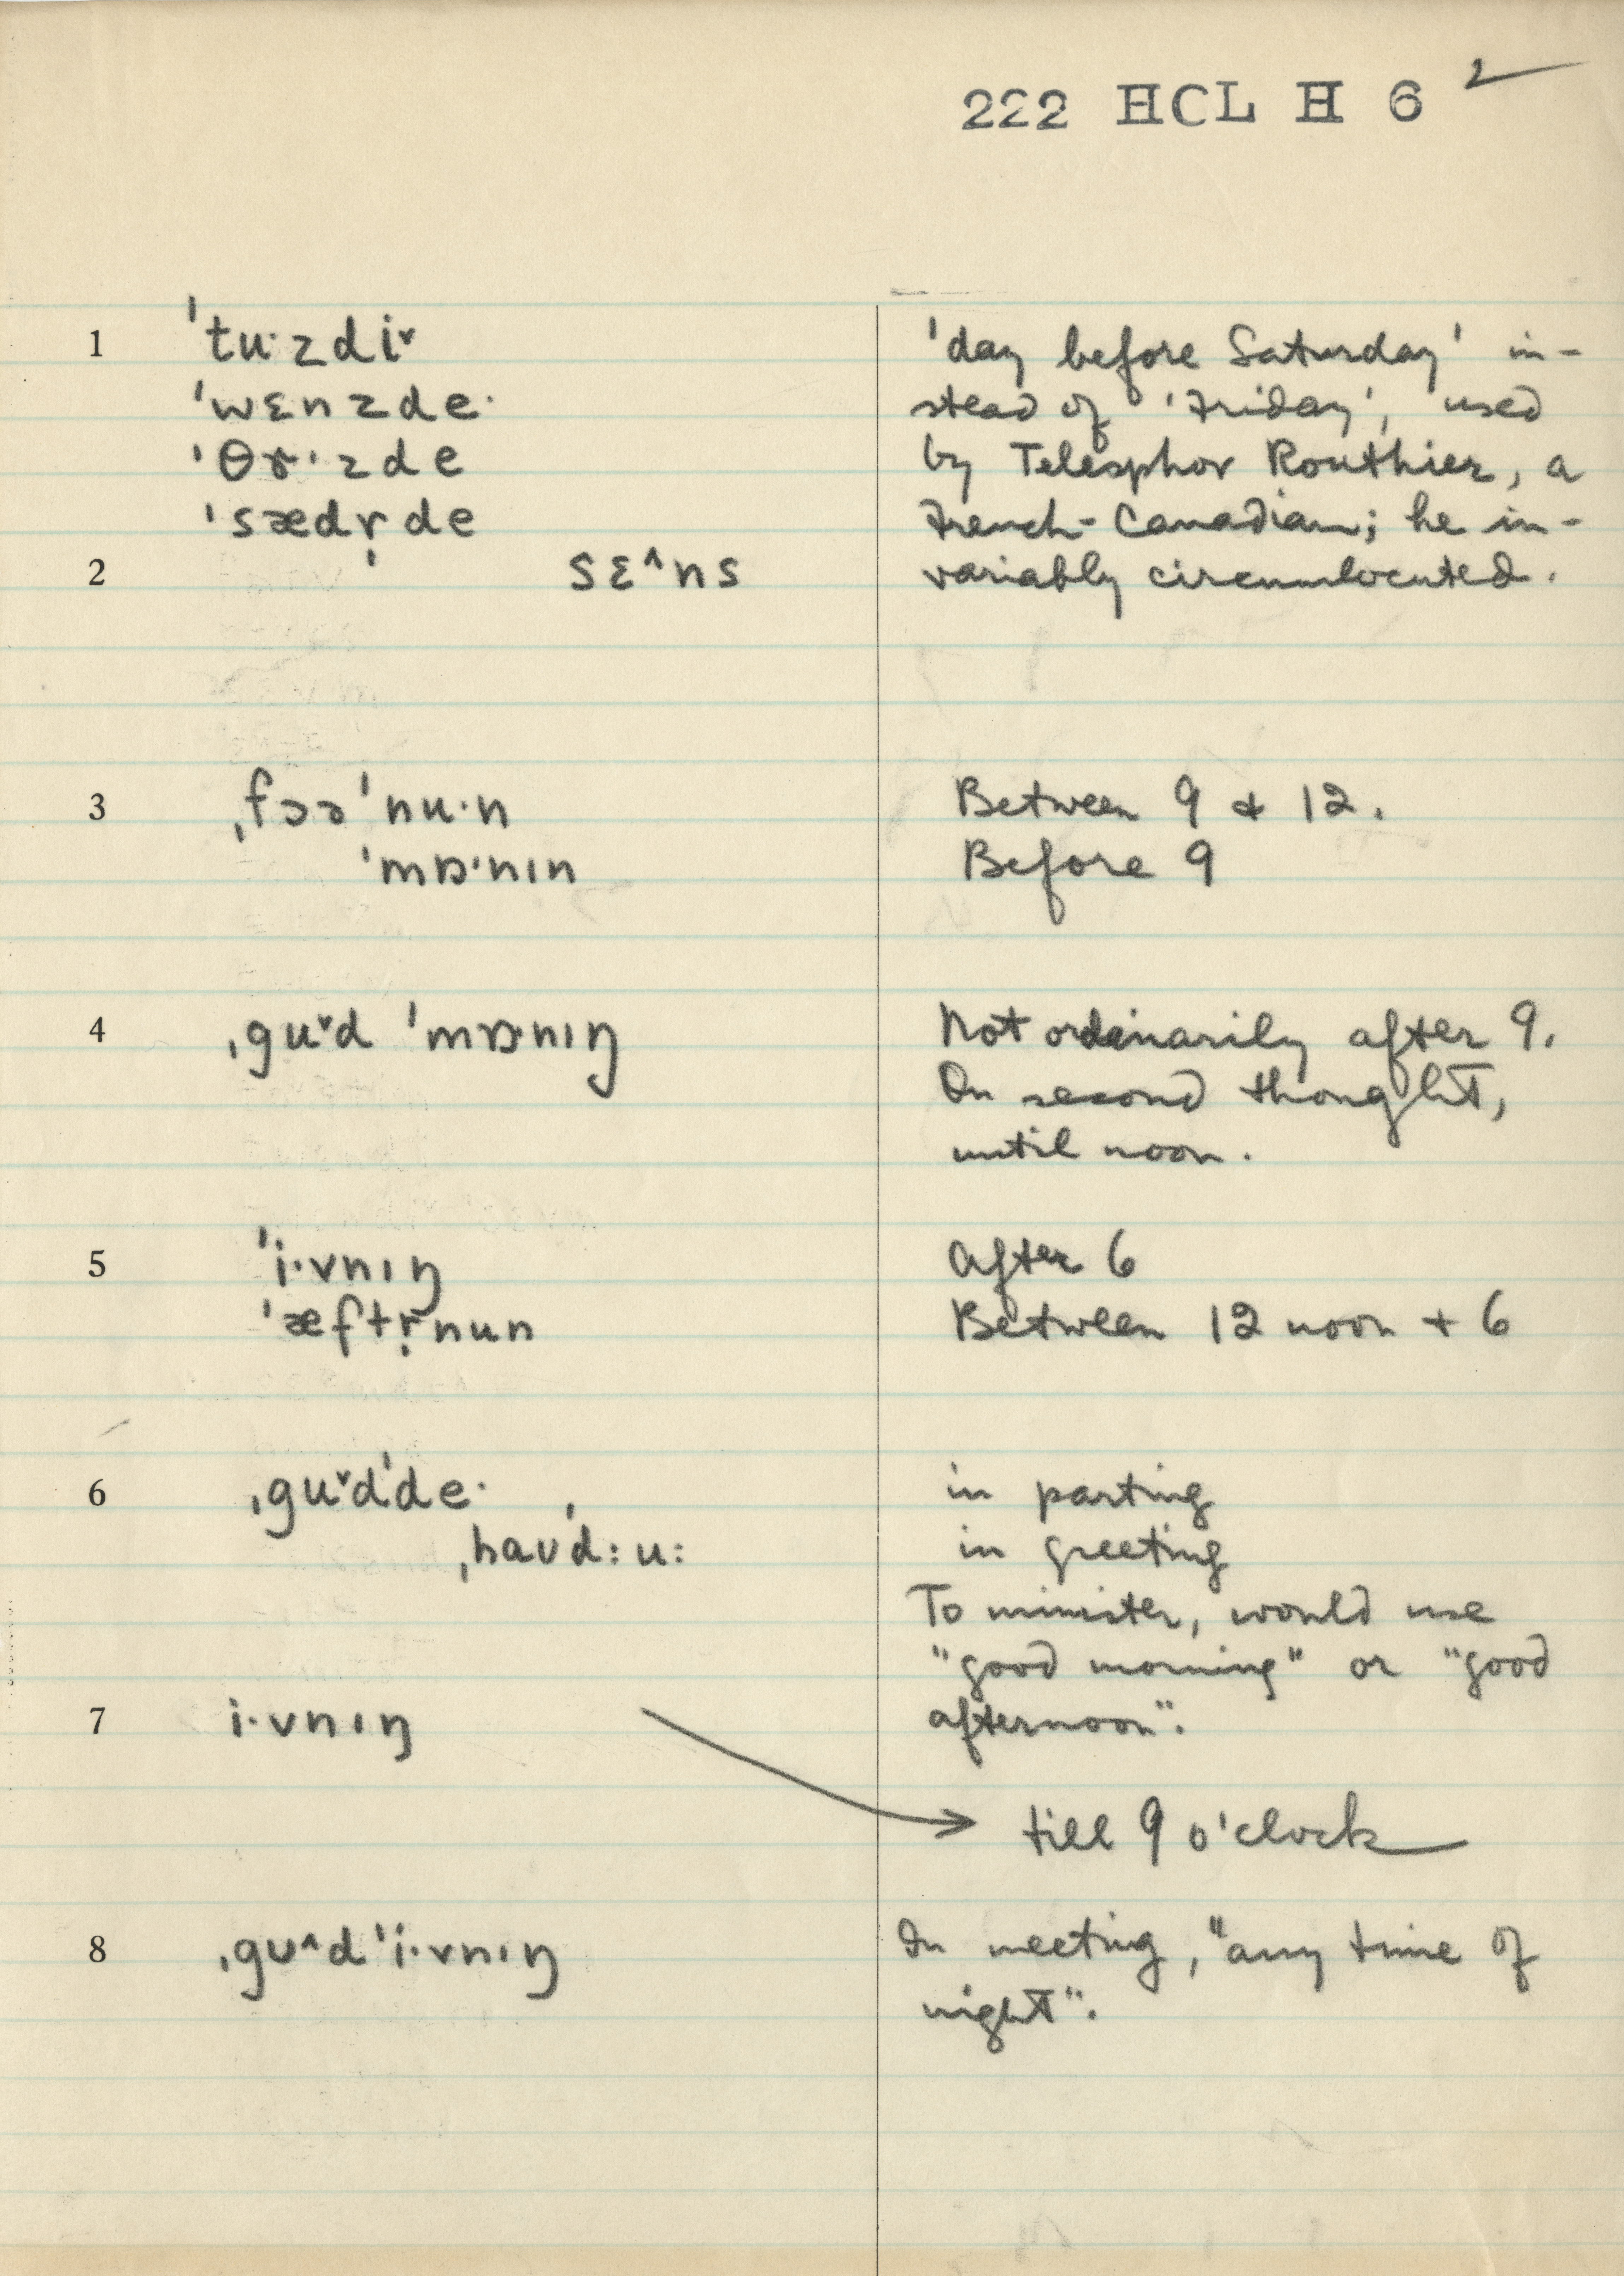 222 HCL H 6 2
1 ˈtu·zdiˇ
ˈwɛnzde·
ˈθɤ·zde
ˈsædr̩de
2 sɛ^ns
'day before Saturday' in-
stead of 'Friday', used
by Telesphor Routhier, a
French-Canadian; he in-
variably circumlocuted.
3 ˌfɔəˈnu·n Between 9 & 12.
ˈmɒ·nın Before 9
4 ˌguˇd ˈmɒ·nıŋ Not ordinarily after 9.
On second thought,
until noon.
5 ˈi·vnıŋ After 6
ˈæftr̩nun Between 12 noon + 6
6 ˌguˇdˈde· , in parting
ˌhaʊˈd:u: in greeting
To minister, would use
"good morning" or "good
afternoon".
7 i·vnıŋ
till 9 o'clock
8 ˌgʊ^dˈi·vnıŋ In meeting, "any time of
night".